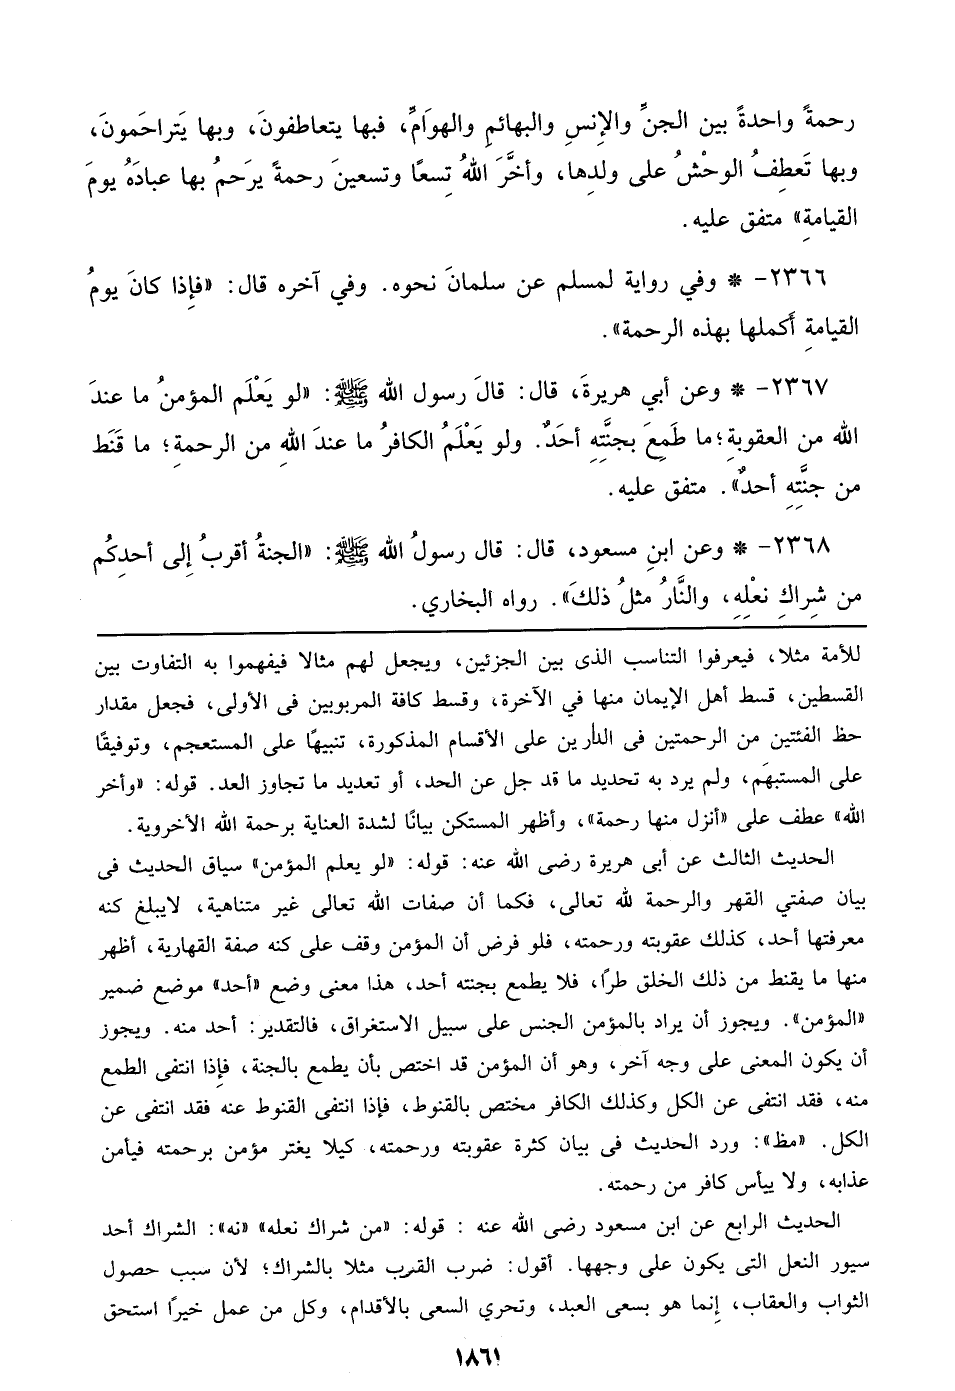 رحمةً واحدةً بين الجنِّ والإِنسِ والبهائمِ والهوَامِّ، فبها يتعاطفونَ، وبها يَتراحَمونَ،
وبها تَعطِفُ الوحْشُ على ولدِها، وأخَّرَ اللهُ تِسعًا وتسعينَ رحمةً يرَحمُ بها عبادَهُ يومَ
القيامةِ» متفق عليه.
٢٣٦٦- * وفي رواية لمسلم عن سلمانَ نحوه. وفي آخره قال: «فإِذا كانَ يومُ
القيامةِ أَكملها بهذه الرحمة».
٢٣٦٧- * وعن أبي هريرةَ، قال: قالَ رسول الله ﷺ: «لو يَعْلَم المؤمنُ ما عندَ
الله من العقوبةِ؛ما طَمِعَ بجنَّتِهِ أحَدٌ. ولو يَعْلَمُ الكافرُ ما عندَ اللهِ من الرحمةِ؛ ما قَنَط
من جنَّتِهِ أحدٌ». متفق عليه.
٢٣٦٨- * وعن ابنِ مسعود، قال: قال رسولُ الله ﷺ: «الجنةُ أقربُ إِلى أحدِكُم
من شِراكِ نعْلِهِ، والنَّارُ مثلُ ذلكَ». رواه البخاري.
للأمة مثلا، فيعرفوا التناسب الذى بين الجزئين، ويجعل لهم مثالا فيفهموا به التفاوت بين
القسطين، قسط أهل الإيمان منها في الآخرة، وقسط كافة المربوبين فى الأولى، فجعل مقدار
حظ الفئتين من الرحمتين فى الدارين على الأقسام المذكورة، تنبيهًا على المستعجم، وتوفيقًا
على المستبهَم، ولم يرد به تحديد ما قد جل عن الحد، أو تعديد ما تجاوز العد. قوله: «وأخر
الله» عطف على «أنزل منها رحمة»، وأظهر المستكن بيانًا لشدة العناية برحمة الله الأخروية.
الحديث الثالث عن أبى هريرة رضى الله عنه: قوله: «لو يعلم المؤمن» سياق الحديث فى
بيان صفتي القهر والرحمة لله تعالى، فكما أن صفات الله تعالى غير متناهية، لايبلغ كنه
معرفتها أحد، كذلك عقوبته ورحمته، فلو فرض أن المؤمن وقف على كنه صفة القهارية، أظهر
منها ما يقنط من ذلك الخلق طرًا، فلا يطمع بجنته أحد، هذا معنى وضع «أحد» موضع ضمير
«المؤمن». ويجوز أن يراد بالمؤمن الجنس على سبيل الاستغراق، فالتقدير: أحد منه. ويجوز
أن يكون المعنى على وجه آخر، وهو أن المؤمن قد اختص بأن يطمع بالجنة، فإذا انتفى الطمع
منه، فقد انتفى عن الكل وكذلك الكافر مختص بالقنوط، فإذا انتفى القنوط عنه فقد انتفى عن
الكل. «مظ»: ورد الحديث فى بيان كثرة عقوبته ورحمته، كيلا يغتر مؤمن برحمته فيأمن
عذابه، ولا ييأس كافر من رحمته.
الحديث الرابع عن ابن مسعود رضى الله عنه : قوله: «من شراك نعله» «نه»: الشراك أحد
سيور النعل التى يكون على وجهها. أقول: ضرب القرب مثلا بالشراك؛ لأن سبب حصول
الثواب والعقاب، إنما هو بسعى العبد، وتحري السعى بالأقدام، وكل من عمل خيرًا استحق
١٨٦١